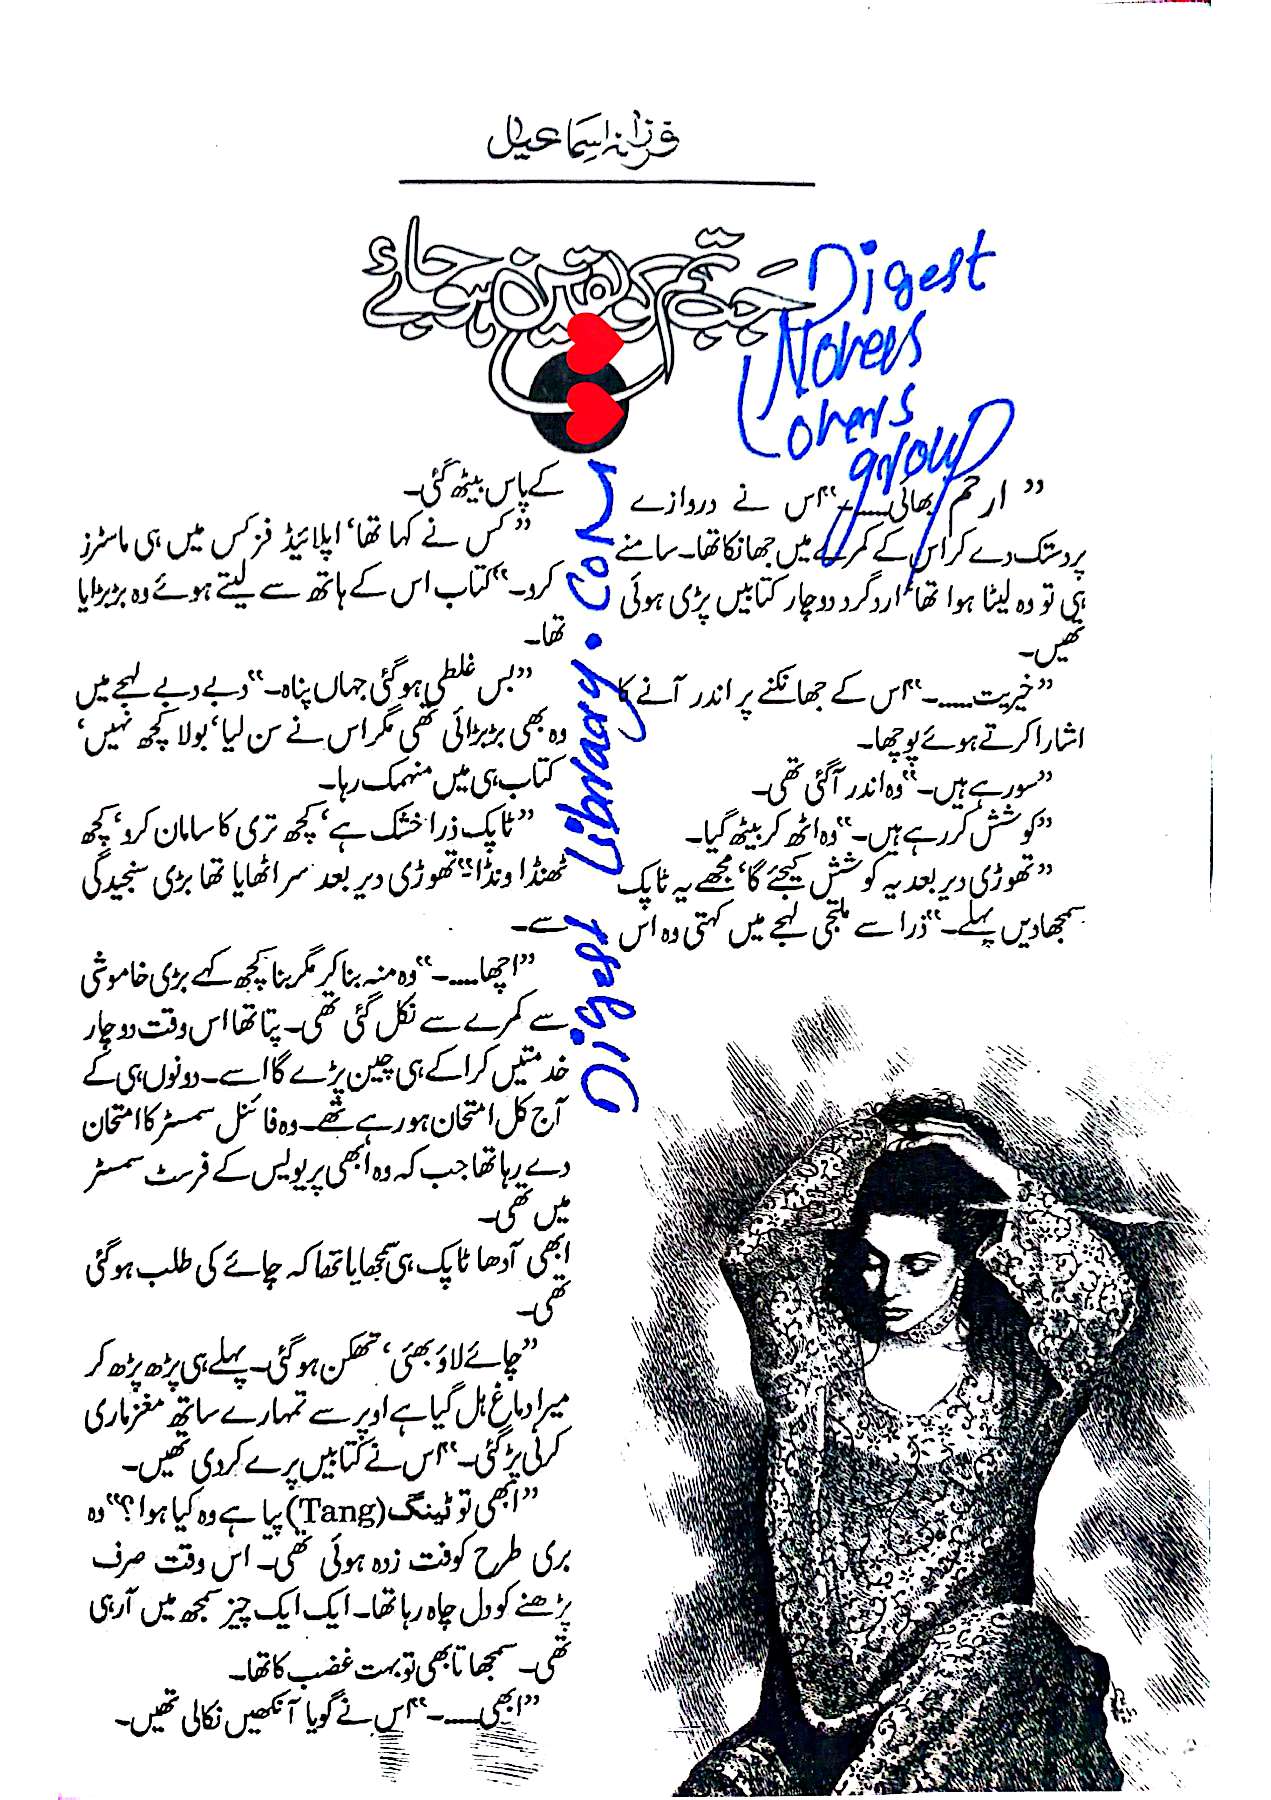 فرزانہ اسماعیل
جب تم کو یقین ہو جائے
Digest
Novels
Lovers
group
Digest Library.com
”ارحم بھائی.....۔“ اس نے دروازے
پر دستک دے کر اس کے کمرے میں جھانکا تھا۔ سامنے
ہی تو وہ لیٹا ہوا تھا‘ ارد گرد دو چار کتابیں پڑی ہوئی
تھیں۔
”خیریت.....۔“ اس کے جھانکنے پر اندر آنے کا
اشارا کرتے ہوئے پوچھا۔
”سو رہے ہیں۔“ وہ اندر آگئی تھی۔
”کوشش کر رہے ہیں۔“ وہ اٹھ کر بیٹھ گیا۔
”تھوڑی دیر بعد یہ کوشش کیجئے گا‘ مجھے یہ ٹاپک
سمجھا دیں پہلے۔“ ذرا سے ملتجی لہجے میں کہتی وہ اس
کے پاس بیٹھ گئی۔
”کس نے کہا تھا‘ اپلائیڈ فزکس میں ہی ماسٹرز
کرو۔“ کتاب اس کے ہاتھ سے لیتے ہوئے وہ بڑبڑایا
تھا۔
”بس غلطی ہوگئی جہاں پناہ۔“ دبے دبے لہجے میں
وہ بھی بڑبڑائی تھی مگر اس نے سن لیا‘ بولا کچھ نہیں‘
کتاب ہی میں منہمک رہا۔
”ٹاپک ذرا خشک ہے‘ کچھ تری کا سامان کرو‘ کچھ
ٹھنڈا ونڈا۔“ تھوڑی دیر بعد سر اٹھایا تھا بڑی سنجیدگی
سے۔
”اچھا.....۔“ وہ منہ بنا کر مگر بنا کچھ کہے بڑی خاموشی
سے کمرے سے نکل گئی تھی۔ پتا تھا اس وقت دو چار
خدمتیں کرا کے ہی چین پڑے گا اسے۔ دونوں ہی کے
آج کل امتحان ہو رہے تھے۔ وہ فائنل سمسٹر کا امتحان
دے رہا تھا جب کہ وہ ابھی پریویس کے فرسٹ سمسٹر
میں تھی۔
ابھی آدھا ٹاپک ہی سمجھایا تھا کہ چائے کی طلب ہوگئی
تھی۔
”چائے لاؤ بھئی‘ تھکن ہوگئی۔ پہلے ہی پڑھ پڑھ کر
میرا دماغ ہل گیا ہے اوپر سے تمہارے ساتھ مغز ماری
کرنی پڑ گئی۔“ اس نے کتابیں پرے کردی تھیں۔
”ابھی تو ٹینگ (Tang) پیا ہے وہ کیا ہوا؟“ وہ
بری طرح کوفت زدہ ہوئی تھی۔ اس وقت صرف
پڑھنے کو دل چاہ رہا تھا۔ ایک ایک چیز سمجھ میں آرہی
تھی۔ سمجھاتا بھی تو بہت غضب کا تھا۔
”ابھی.....۔“ اس نے گویا آنکھیں نکالی تھیں۔